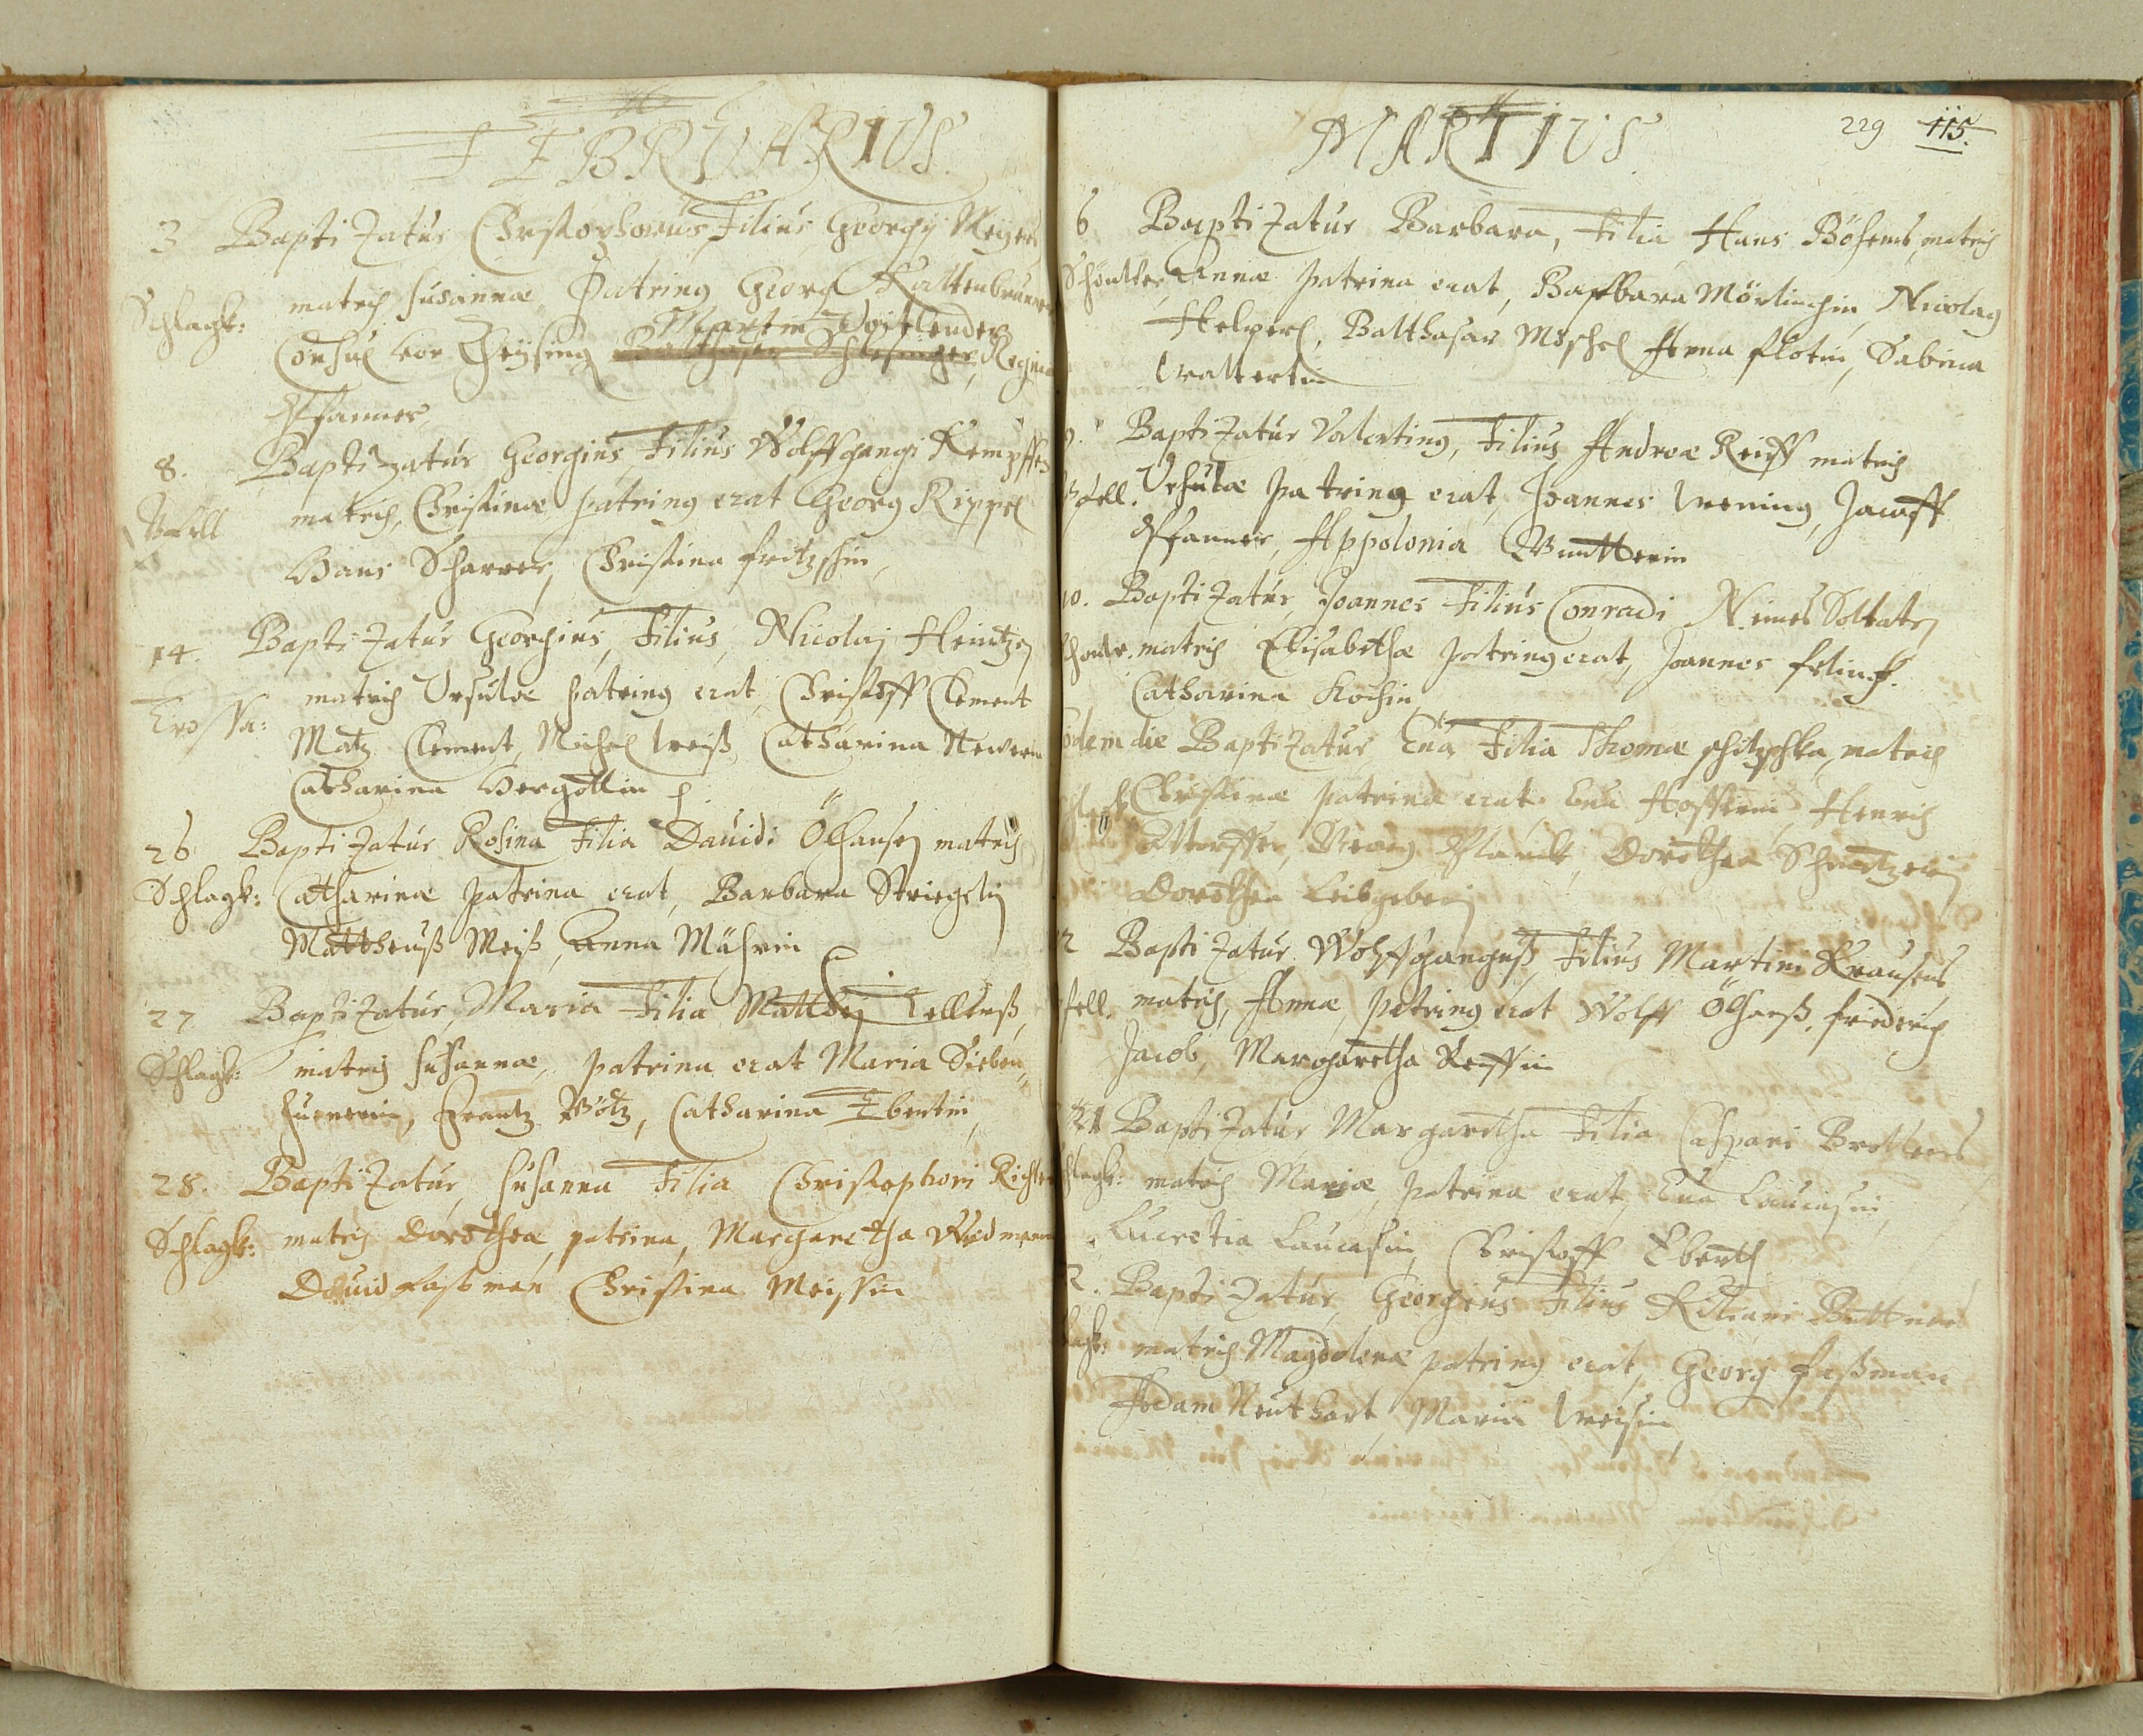 FEBRVARIVS.
3 Baptizatus Christophorus Filius Georgÿ Meÿers
Schlagk: matris Susannæ Patrinus Georg Kaltenbrunner
Martin Voitlender
Consul von Theÿsing Balthasar Schlesinger, Regina
Pfanner,
8. Baptizatus Georgius, Filius Wolffgangi Kempffen
matris, Christinæ patrinus erat Georg Rippel
Hans Scharrer, Christina fritzschin,
14. Baptizatus Georgius, Filius, Nicolaj Heintzen
matris Ursulæ patrinus erat, Christoff Clement
Matz Clement, Michel weiß, Catharina Newerin
Catharina Hergottin
26 Baptizatur Rosina Filia Dauidi Ölhansen matris
Schlagk: Catharinæ patrina erat, Barbara Striegelin
Mattheuß Meiß, Anna Mährin
27 Baptizatur, Maria Filia Matthej Kellneß,
Schlagk: matris Susannæ, patrina erat Maria Sieben,,
hunerin, Frantz Götz, Catharina Ebertin,
28. Baptizatur, Susanna Filia Christophori Richter
Schlagk: matris Dorotheæ, patrina, Margaretha Widman
Dauid fastman Christina Meissin
MARTIUS.
229 115.
6 Baptizatur Barbara, Filia Hans Böhems, matris
Annæ patrina erat, Barbara Mörlinchin, Nicolaus
Helperl, Balthasar Möschel Anna flotin, Sabina
waltertin
Baptizatus Valentinus, Filius Andreæ Reiff matris
Ursulæ patrinus erat, Joannes wrening, Jacoff
Pfanner, Appolonia Gunttherin
10. Baptizatus, Joannes Filius Conradi N. eines Soltaten
matris Elisabethæ patrinus erat, Joannes frlinck.
Catharina Kochin
Eodem die Baptizatur Eua Filia Thomæ schitzschka, matris
Christinæ patrina erat Eua Henrich
Georg Planck, Dorothea
Dorothea Leibgeberin
Baptizatus Wolffganguß, Filius Martini Krausens
matris, Annæ, patrinus erat Wolff Ölhanß, friedrich
Jacob, Margaretha Reiffin
21 Baptizatur Margaretha Filia Caspari Brotters
matris Mariæ, patrina erat, Eua Laucasin,
Lucretia Laucasin, Christoff Eberth
Baptizatus, Georgius Filius Kiliani Buttner
matris Magdalenæ patrinus erat, Georg faßman
Adam Neuthart, Maria weisin,